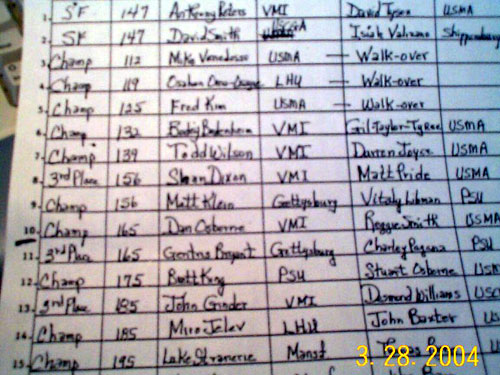 1. SF 147 Anthony Peters VMI David Tyson USMA
2. SF 147 David Smith USCGA Isiah Valrano Shippensburg
3. Champ 112 Mike USMA — Walk-over
4. Champ 119 LHU — Walk-over
5. Champ 125 Fred Kim USMA — Walk-over
6. Champ 132 VMI Gil Taylor-Tyree USMA
7. Champ 139 Todd Wilson VMI Darren Joyce USMA
8. 3rd Place 156 Shean Dixon VMI Matt Pride USMA
9. Champ 156 Matt Klein Gettysburg Vitaly PSU
10. Champ 165 Dan Osborne VMI Reggie Smith USMA
11. 3rd Place 165 Bryant Gettysburg Charley PSU
12. Champ 175 Brett King PSU Stuart Osborne
13. 3rd Place 185 John Grinder VMI Desmond Williams
14. Champ 185 Miro Jelev LHU John Baxter
15. Champ 195 Luke Mansf
3. 28. 2004